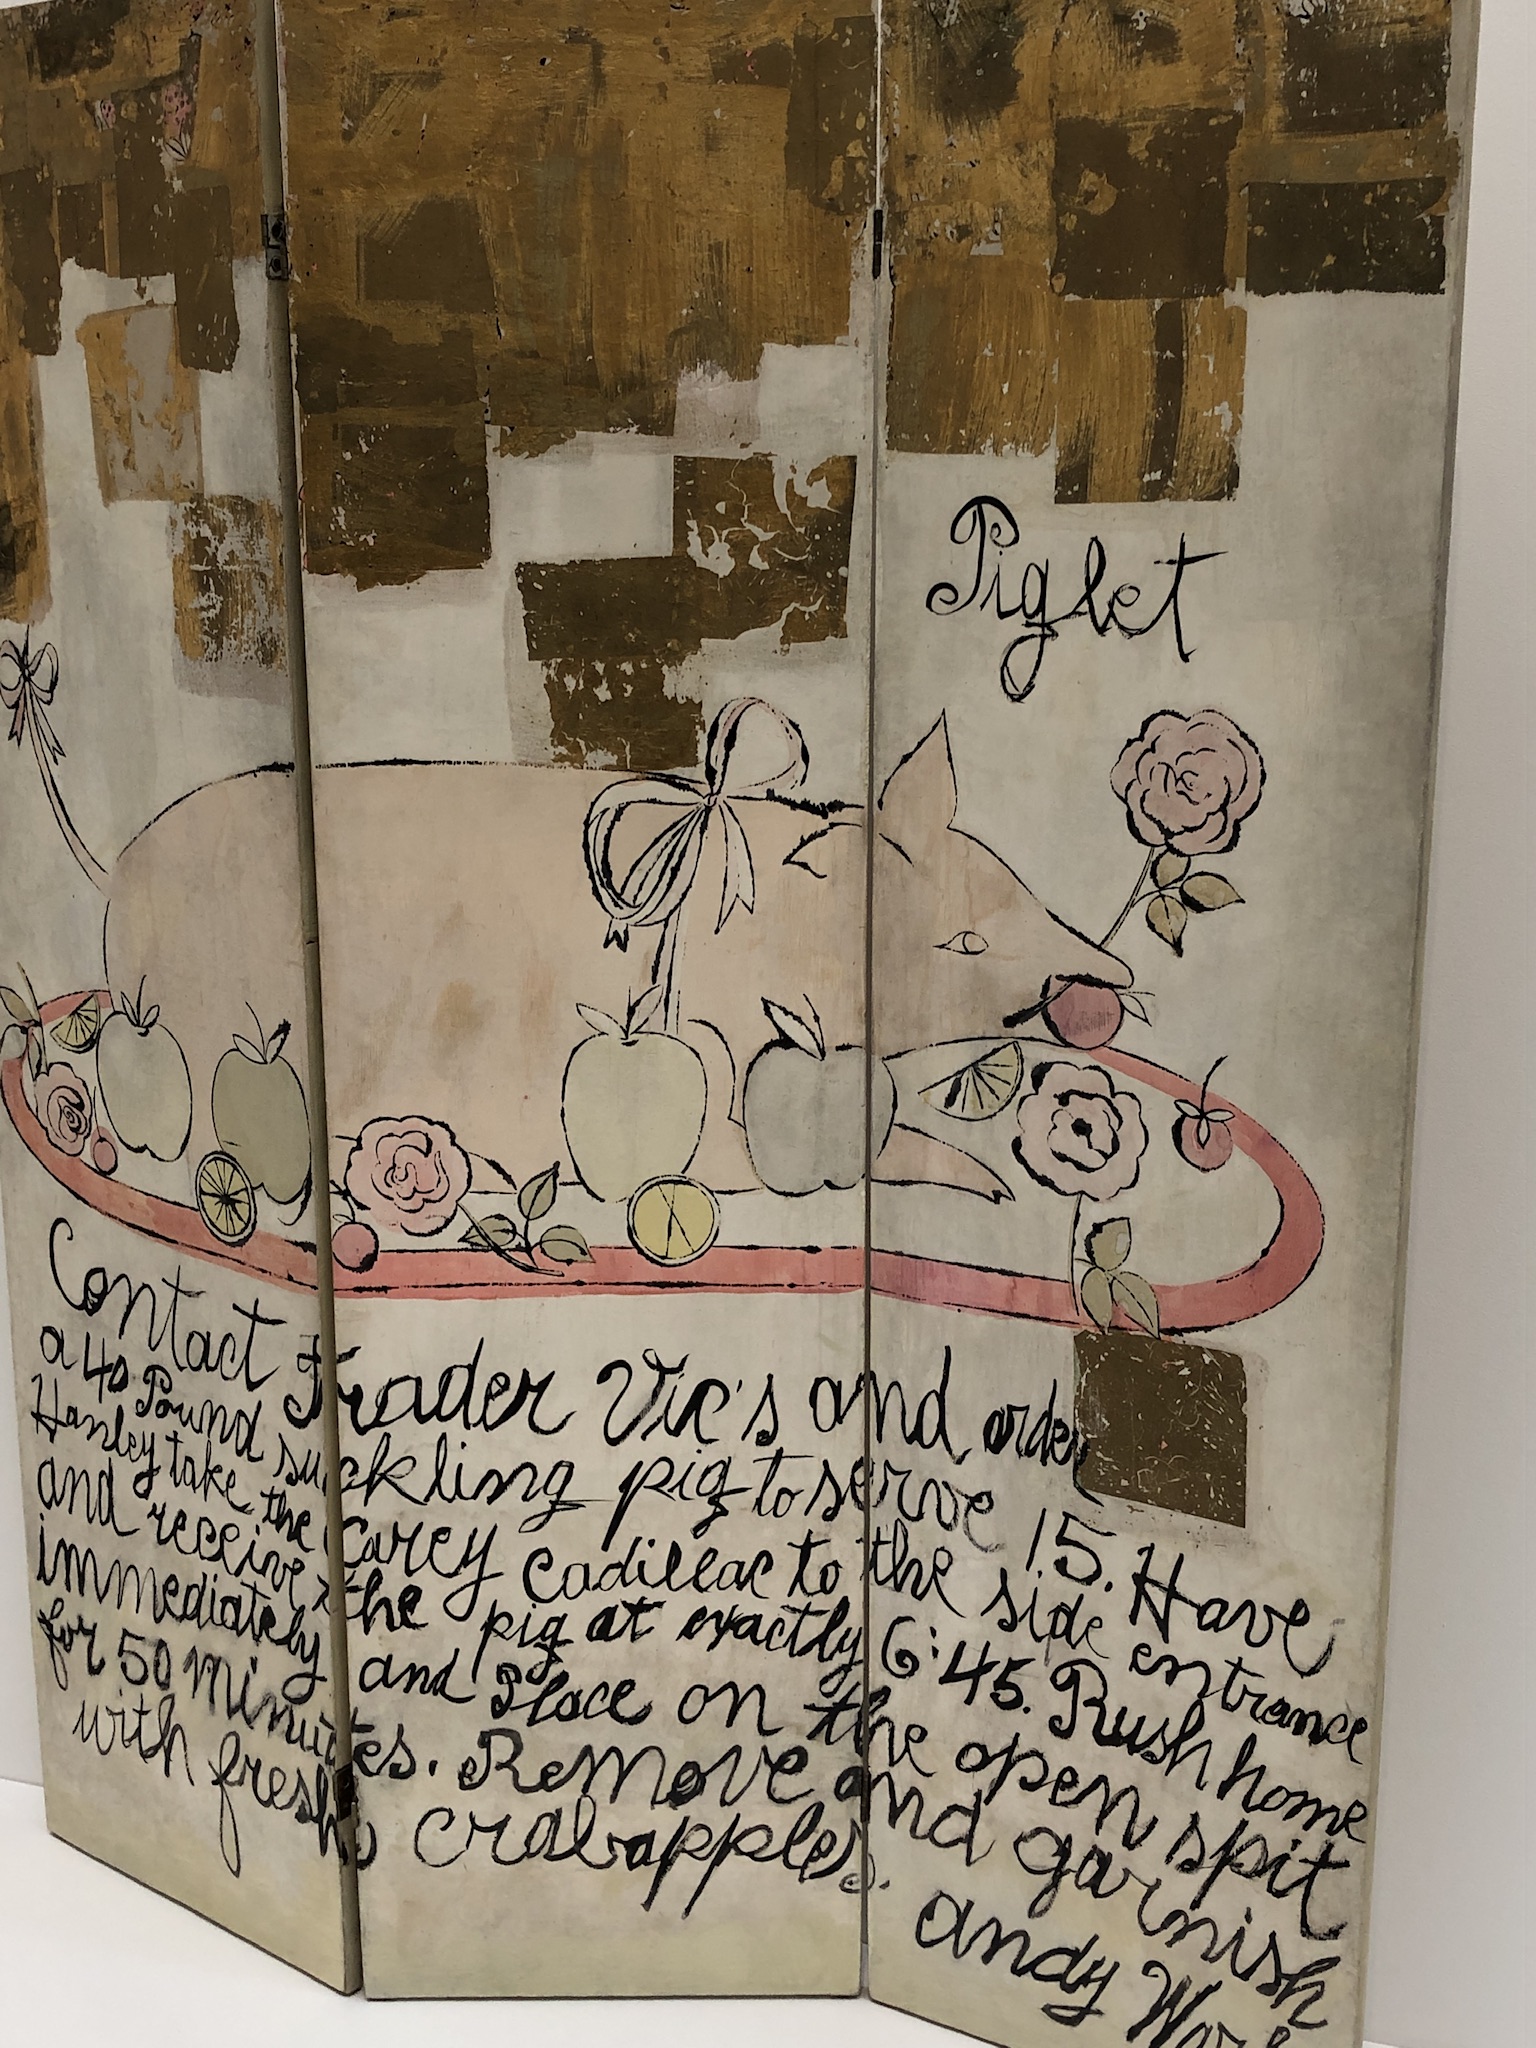 Piglet
Contact Trader Vic's and order
a 40 Pound suckling pig to serve 15. Have
Hanley take the Carey Cadillac to the side entrance
and receive the pig at exactly 6:45. Rush home
immediately and Place on the open spit
for 50 minutes. Remove and garnish
with fresh crabapples.
andy